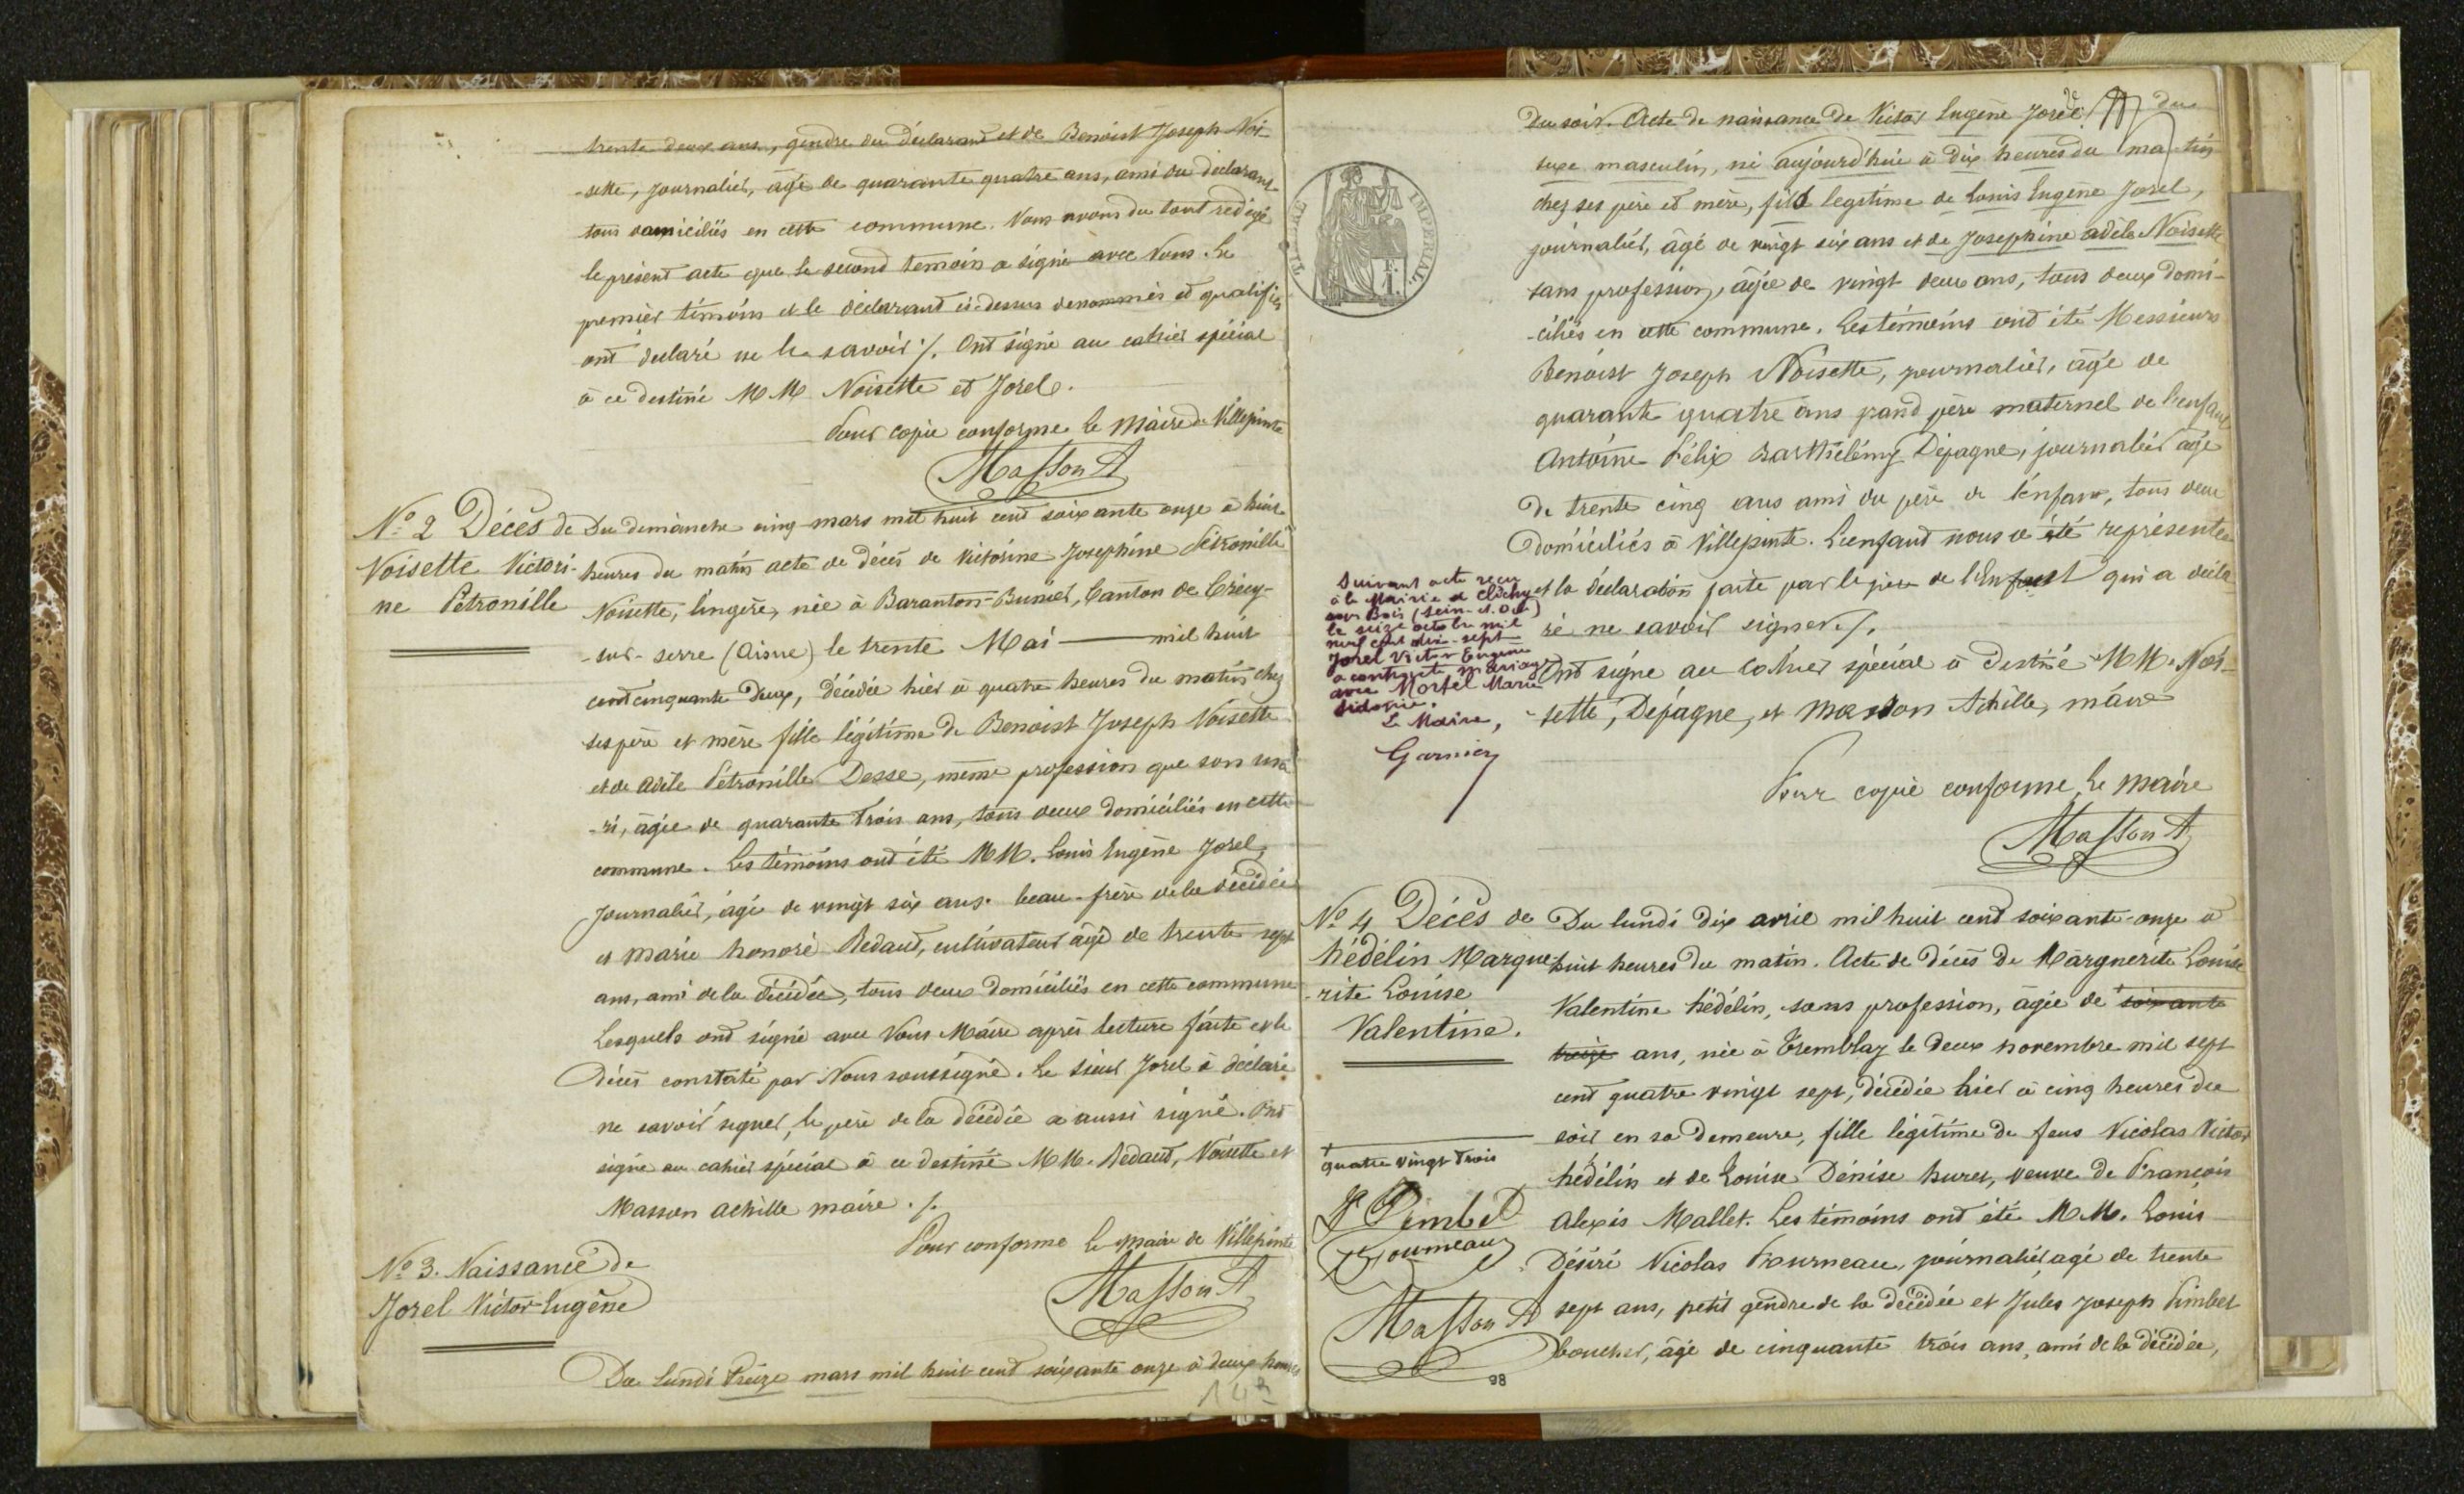 trente deux ans, gendre du déclarant et de Benoist Joseph Noi-
-sette, journalier, âgé de quarante quatre ans, ami du déclarant
tous domiciliés en cette commune. Nous avons du tout rédigé
le présent acte que le second témoin a signé avec Nous. Le
premier témoin et le déclarant ci-dessus dénommés et qualifiés
ont déclaré ne le savoir ./. Ont signé au cahier spécial
à ce destiné M M Noisette et Jorel.
Pour copie conforme Le Maire de Villepinte
Masson A
N° 2 Décès de
Noisette Victori-
ne Pétronille
Du dimanche cinq mars mil huit cent soixante onze à huit
heures du matin acte de décès de Victorine Josephine Pétronille
Noisette, lingère, née à Baranton-Bunier, Canton de Crécy-
-sur-serre (Aisne) le trente Mai — mil huit
cent cinquante deux, décédée hier à quatre heures du matin chez
ses père et mère fille légitime de Benoist Joseph Noisette
et de Adèle Pétronille Desse, même profession que son ma
-ri, âgée de quarante trois ans, tous deux domiciliés en cette
commune. Les témoins ont été MM. Louis Eugène Jorel,
Journalier, âgé de vingt six ans. beau-frère de la décédée
et Marie honoré Redaut, cultivateur âgé de trente sept
ans, ami de la décédée, tous deux domiciliés en cette commune
Lesquels ont signé avec Nous Maire après lecture faite et le
Décès constaté par Nous soussigné. Le sieur Jorel à déclaré
ne savoir signer, le père de la décédée a aussi signé. Ont
signé au cahier spécial à ce destiné MM. Redaut, Noisette et
Masson achille maire ./.
Pour conforme Le Maire de Villepinte
Masson A
N° 3. Naissance de
Jorel Victor-Eugène
Du lundi treize mars mil huit cent soixante onze à deux heures
TIMBRE IMPERIAL
1 F.
du soir. Acte de naissance de Victor Eugène Jorel du
sexe masculin, né aujourd'hui à dix heures du ma-tin
chez ses père et mère, fils legitime de Louis Eugène Jorel,
journalier, âgé de vingt six ans et de Josephine adèle Noisette
sans profession, âgée de vingt deux ans, tous deux domi-
-ciliés en cette commune. Les témoins ont été Messieurs
Benoist Joseph Noisette, journalier, âgé de
quarante quatre ans grand père maternel de l'enfant
Antoine Félix Barthélémy Dépagne, journalier âgé
de trente cinq ans ami du père de l'enfant, tous deux
domiciliés à Villepinte. L'enfant nous a été représenté
et la déclaration faite par le père de l'Enfant qui a décla
ré ne savoir signer ./.
Ont signé au cahier spécial à destiné MM. Noi-
-sette, Dépagne, et Masson Achille, maire
Pour copie conforme, le maire
Masson A
Suivant acte reçu
à la Mairie de Clichy
sous Bois (Seine-et-Oise)
le seize octobre mil
neuf cent dix-sept
Jorel Victor Eugène
a contracté mariage
avec Mortel Marie
Sidonie.
Le Maire,
Garnier
N° 4 Décès de
hédélin Margue
-rite Louise
Valentine.
Du lundi dix avril mil huit cent soixante-onze à
huit heures du matin. Acte de décès de Marguerite Louise
Valentine hédélin, sans profession, âgée de soixante
treize ans, née à Tremblay le deux novembre mil sept
cent quatre vingt sept, décédée hier à cinq heures du
soir en sa demeure, fille légitime de feus Nicolas Victor
hédélin et de Louise Dénise huret, veuve de François
Alexis Mallet. Les témoins ont été MM. Louis
Désiré Nicolas Fourneau, journalier âgé de trente
sept ans, petit gendre de la décédée et Jules Joseph Pimbel
boucher, âgé de cinquante trois ans, ami de la décédée,
quatre vingt trois
Pimbel
Fourneaux
Masson A
98